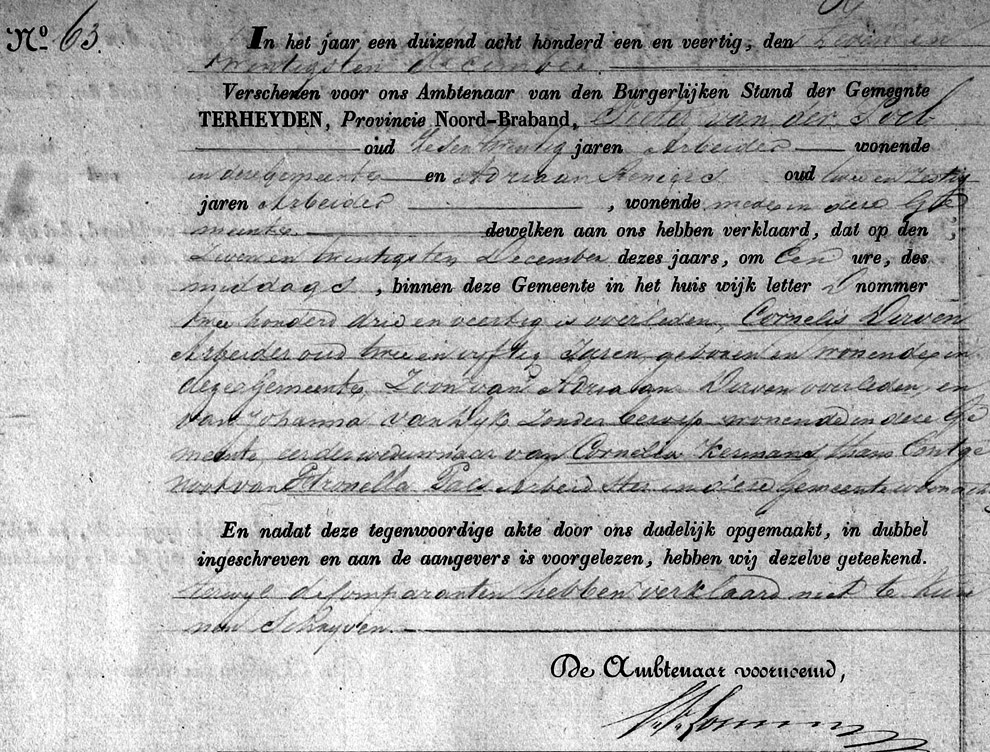 Nº 63.
In het jaar een duizend acht honderd een en veertig, den Zeven en
twintigsten December.
Verschenen voor ons Ambtenaar van den Burgerlijken Stand der Gemeente
TERHEYDEN, Provincie Noord-Braband, Pieter van der Poel
oud twintig jaren Arbeider wonende
in deze gemeente en Adriaan oud twee en zestig
jaren Arbeider , wonende mede in deze Ge
meente dewelken aan ons hebben verklaard, dat op den
Zeven en twintigsten December dezes jaars, om Een ure, des
middags , binnen deze Gemeente in het huis wijk letter nommer
twee honderd drie en veertig is overleden, Cornelis Dirven
Arbeider oud twee en vyftig Jaren, geboren en wonende in
deze Gemeente, Zoon van Adriaan Dirven overleden, en
van Johanna van Dyk Zonder beroep wonende in deze Ge
meente, eerder weduwnaar van Cornelia Kermans, thans Echtge
noot van Petronella Paes Arbeidster in deze Gemeente woonende
En nadat deze tegenwoordige akte door ons dadelijk opgemaakt, in dubbel
ingeschreven en aan de aangevers is voorgelezen, hebben wij dezelve geteekend.
terwyl de Comparanten hebben verklaard niet te kun
nen Schryven.
De Ambtenaar voornoemd,